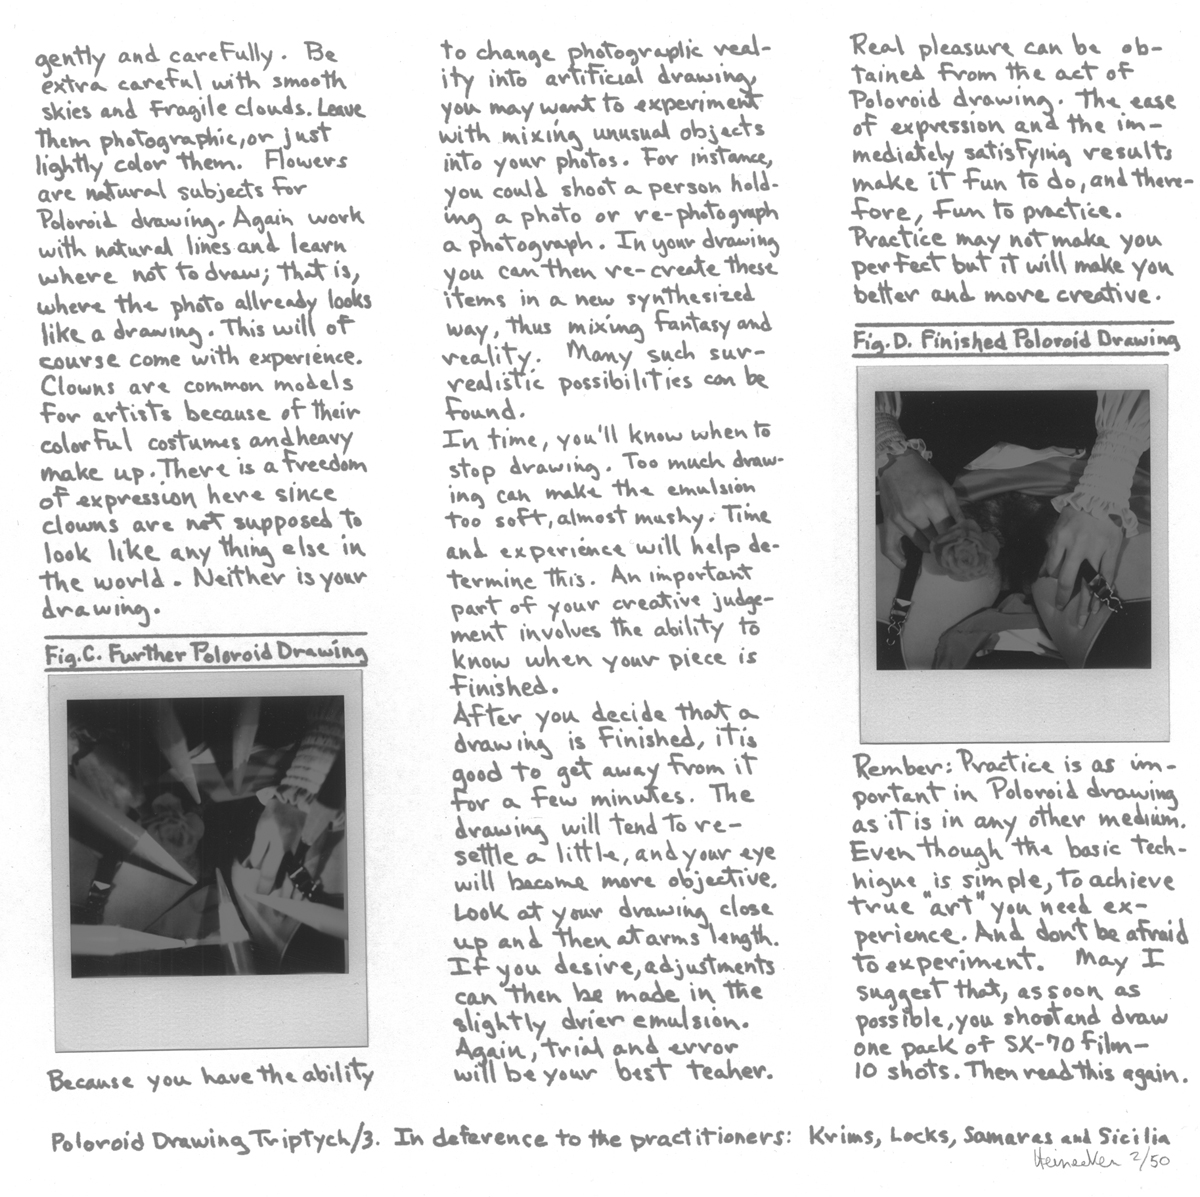 gently and carefully. Be
extra careful with smooth
skies and fragile clouds. Leave
them photographic, or just
lightly color them. Flowers
are natural subjects for
Poloroid drawing. Again work
with natural lines and learn
where not to draw; that is,
where the photo allready looks
like a drawing. This will of
course come with experience.
Clowns are common models
for artists because of their
colorful costumes and heavy
make up. There is a freedom
of expression here since
clowns are not supposed to
look like any thing else in
the world. Neither is your
drawing.
Fig.C. Further Poloroid Drawing
Because you have the ability
to change photographic real-
ity into artificial drawing,
you may want to experiment
with mixing unusual objects
into your photos. For instance,
you could shoot a person hold-
ing a photo or re-photograph
a photograph. In your drawing
you can then re-create these
items in a new synthesized
way, thus mixing fantasy and
reality. Many such sur-
realistic possibilities can be
found.
In time, you'll know when to
stop drawing. Too much draw-
ing can make the emulsion
too soft, almost mushy. Time
and experience will help de-
termine this. An important
part of your creative judge-
ment involves the ability to
know when your piece is
finished.
After you decide that a
drawing is finished, it is
good to get away from it
for a few minutes. The
drawing will tend to re-
settle a little, and your eye
will become more objective.
Look at your drawing close
up and then at arms length.
If you desire, adjustments
can then be made in the
slightly drier emulsion.
Again, trial and error
will be your best teaher.
Real pleasure can be ob-
tained from the act of
Poloroid drawing. The ease
of expression and the im-
mediately satisfying results
make it fun to do, and there-
fore, fun to practice.
Practice may not make you
perfect but it will make you
better and more creative.
Fig.D. Finished Poloroid Drawing
Rember: Practice is as im-
portant in Poloroid drawing
as it is in any other medium.
Even though the basic tech-
nique is simple, to achieve
true "art" you need ex-
perience. And don't be afraid
to experiment. May I
suggest that, as soon as
possible, you shoot and draw
one pack of SX-70 film-
10 shots. Then read this again.
Poloroid Drawing Triptych/3. In deference to the practitioners: Krims, Locks, Samaras and Sicilia
Heinecken 2/50